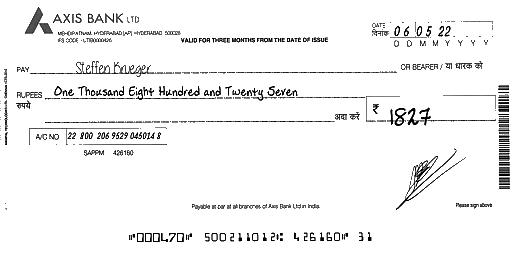 AXIS BANK LTD
MEHDIPATNAM, HYDERABAD(AP) HYDERABAD 500028
IFS CODE - UTIB0000426
VALID FOR THREE MONTHS FROM THE DATE OF ISSUE
DATE
दिनांक 06 05 22
D D M M Y Y Y Y
PAY Steffen Krueger OR BEARER / या धारक को
RUPEES One Thousand Eight Hundred and Twenty Seven
रुपये अदा करें ₹ 1827
A/C NO 22 800 206 9529 045014 8
SAPPM 426160
Payable at par at all branches of Axis Bank Ltd in India.
Please sign above
"000470" 500211012: 426160" 31